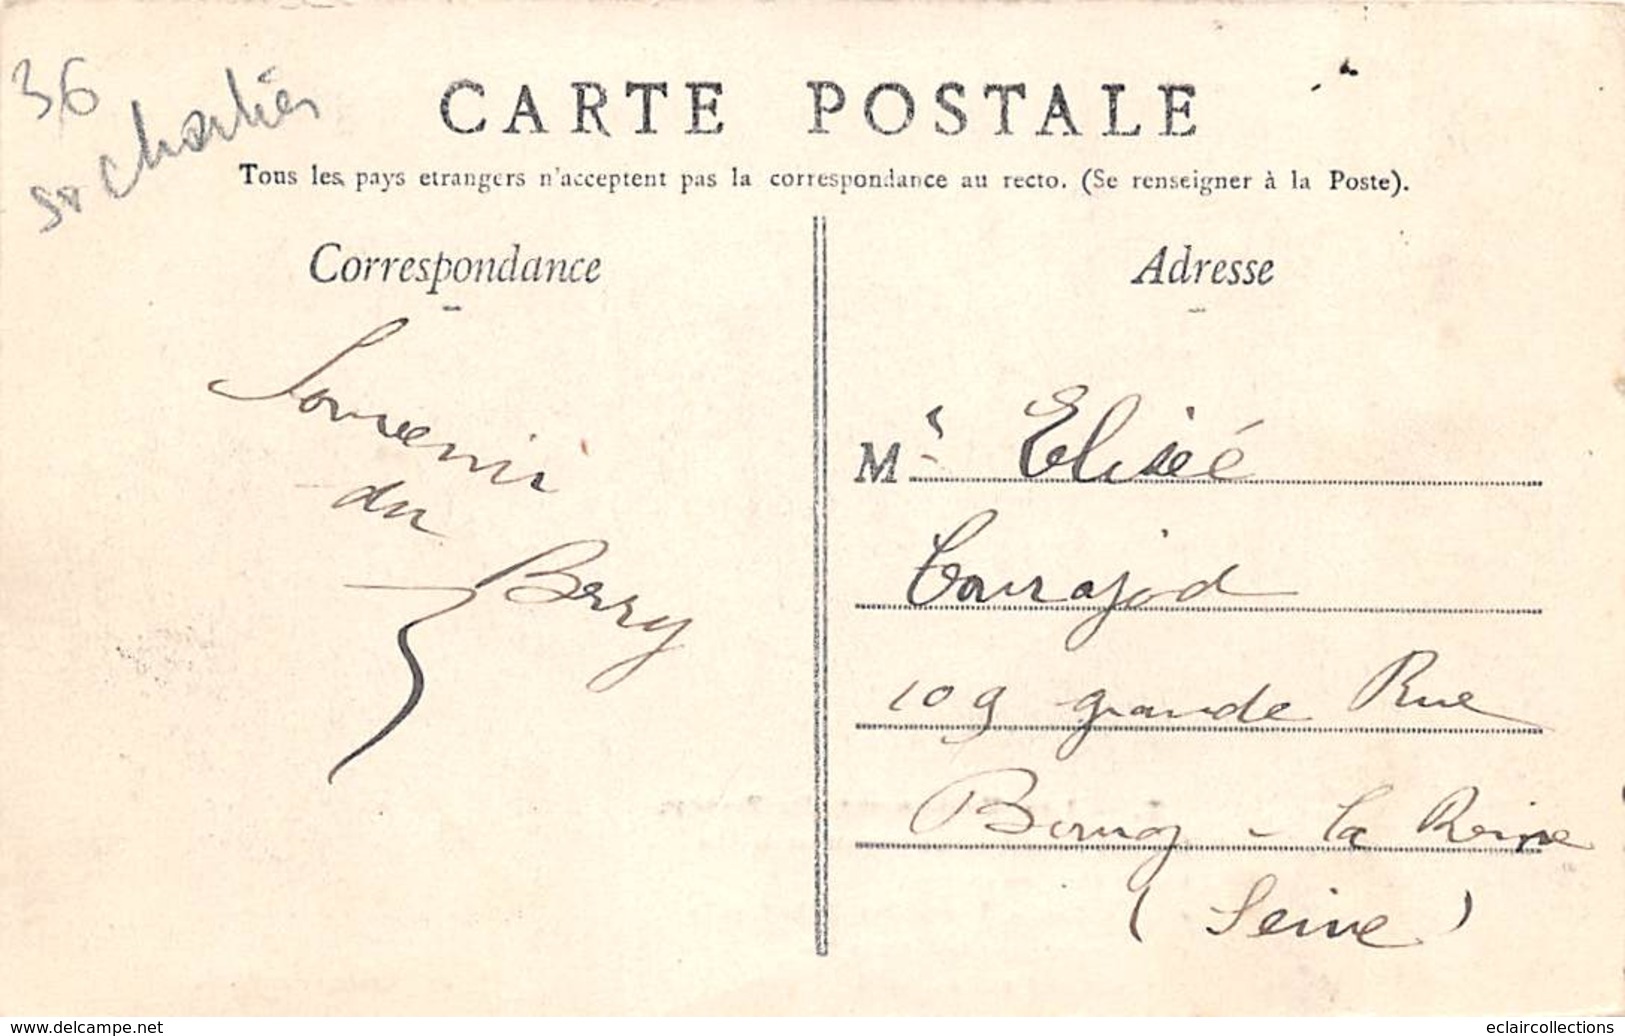 36
St Chartier
CARTE POSTALE
Tous les pays etrangers n'acceptent pas la correspondance au recto. (Se renseigner à la Poste).
Correspondance
Adresse
Souvenir
du
Berry
Mr Elisée
Tourajod
109 grande Rue
Bourg-la Reine
(Seine)
www.delcampe.net
eclaircollections